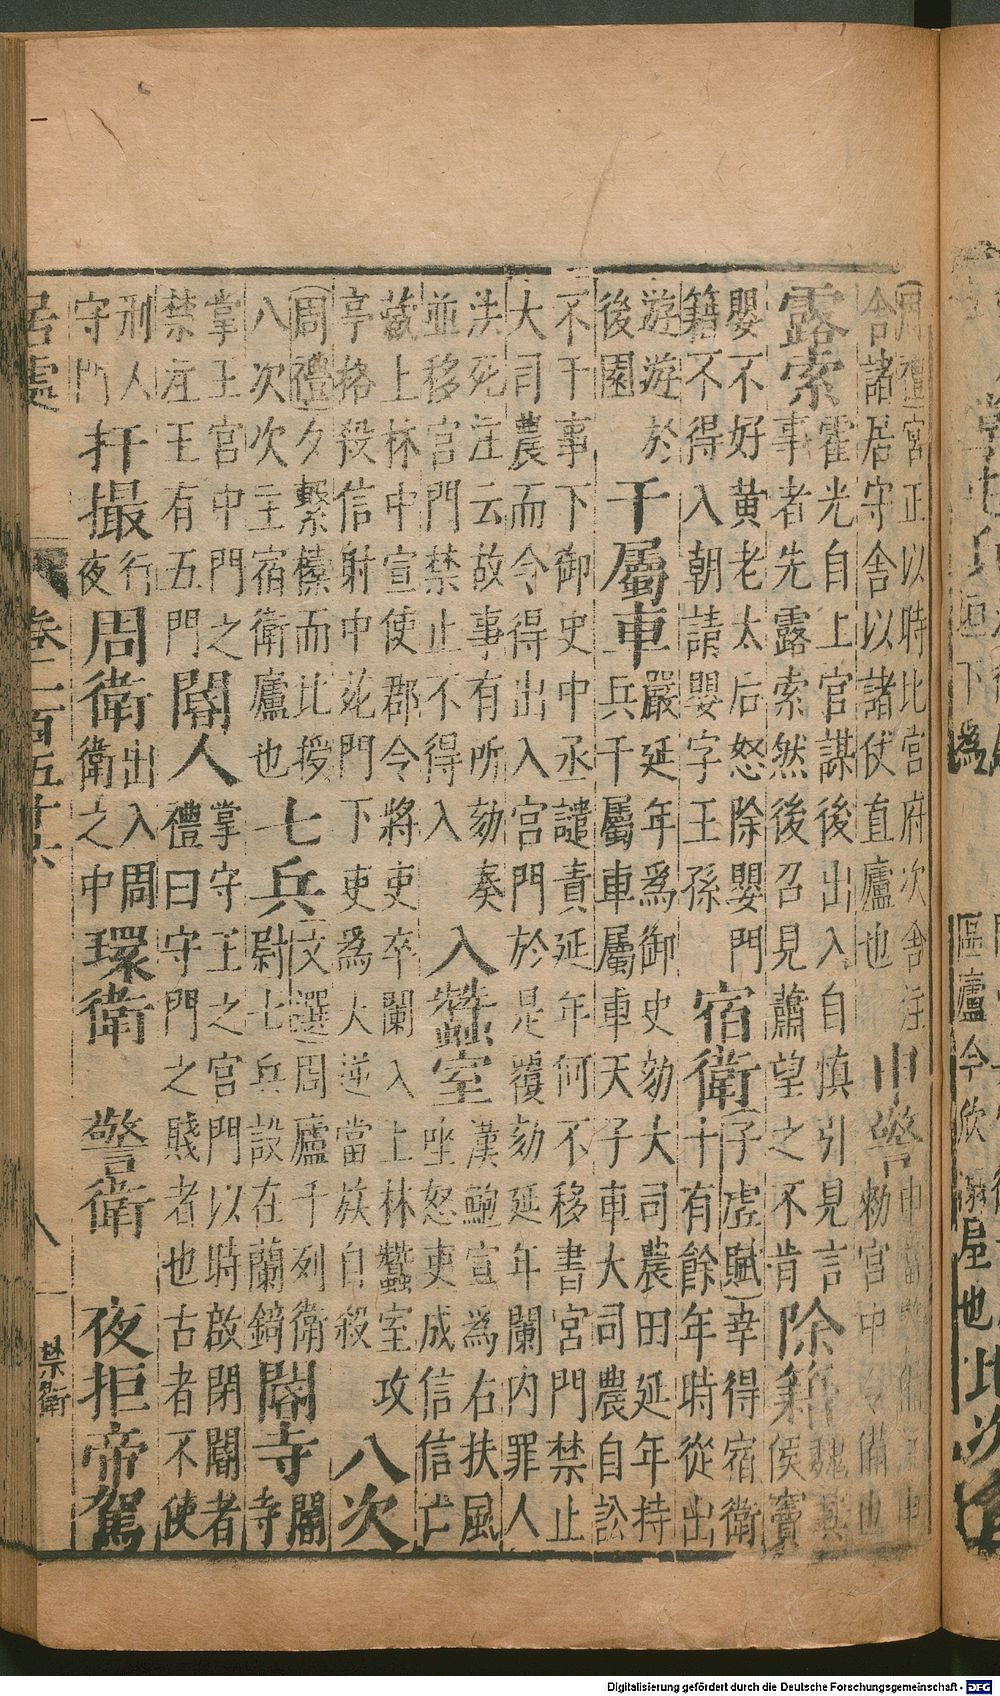 (周禮)宮正以時比宮府次舍注
舍諸居守舍以諸伏直廬也
申警
勅宮中令備也
露索
霍光自上官謀後出入自慎引見言
事者先露索然後召見蕭望之不肯
除籍
魏其
侯竇
嬰不好黃老太后怒除嬰門
籍不得入朝請嬰字王孫
宿衛
(子虛賦)幸得宿衛
十有餘年時從出
遊遊於
後園
干屬車
嚴延年為御史劾大司農田延年持
兵干屬車屬車天子車大司農自訟
不干事下御史中丞譴責延年何不移書宮門禁止
大司農而令得出入宮門於是覆劾延年闌内罪人
法死注云故事有所劾奏
並移宮門禁止不得入
入蠶室
漢鮑宣為右扶風
坐怒吏成信信亡
藏上林中宣使郡令將吏卒闌入上林蠶室攻
亭挌殺信射中苑門下吏為大逆當族自殺
八次
(周禮)夕擊㯓而比援
八次次主宿衛廬也
七兵
(文選)周廬千列衛
尉七兵設在蘭錡
閽寺
閽
寺
掌王宮中門之
禁注王有五門
閽人
掌守王之宮門以時啟閉閽者
禮曰守門之賤者也古者不使
刑人
守門
扞撮
行
夜
周衛
出入周
衛之中
環衛
警衛
夜拒帝駕
居處
卷二百五十六
八
禁衛
Digitalisierung gefördert durch die Deutsche Forschungsgemeinschaft - DFG